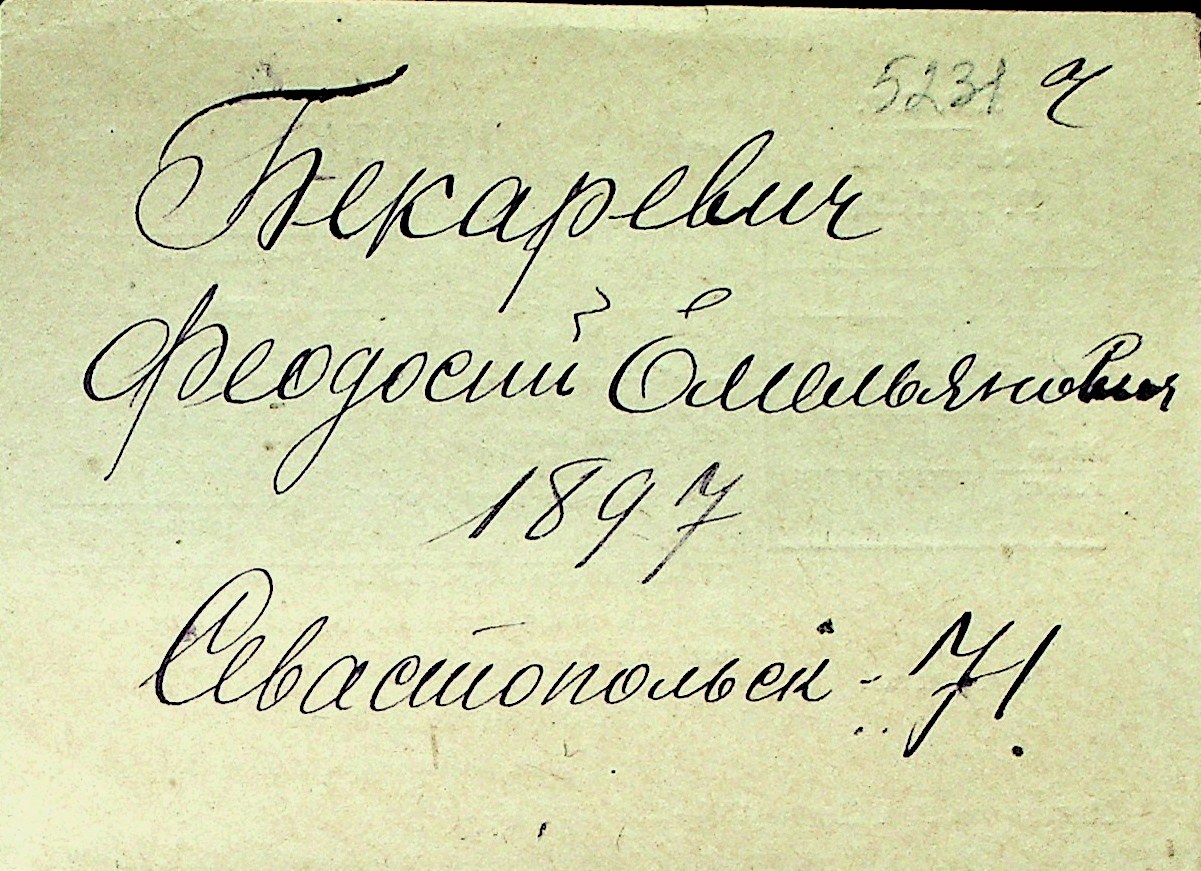 5231 ч
Бекаревич
Феодосий Емельянович
1897
Севастопольск - 71